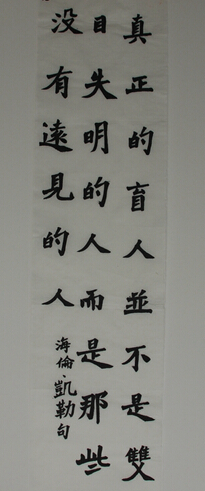 真正的盲人並不是雙
目失明的人而是那些
没有遠見的人
海倫·凱勒句